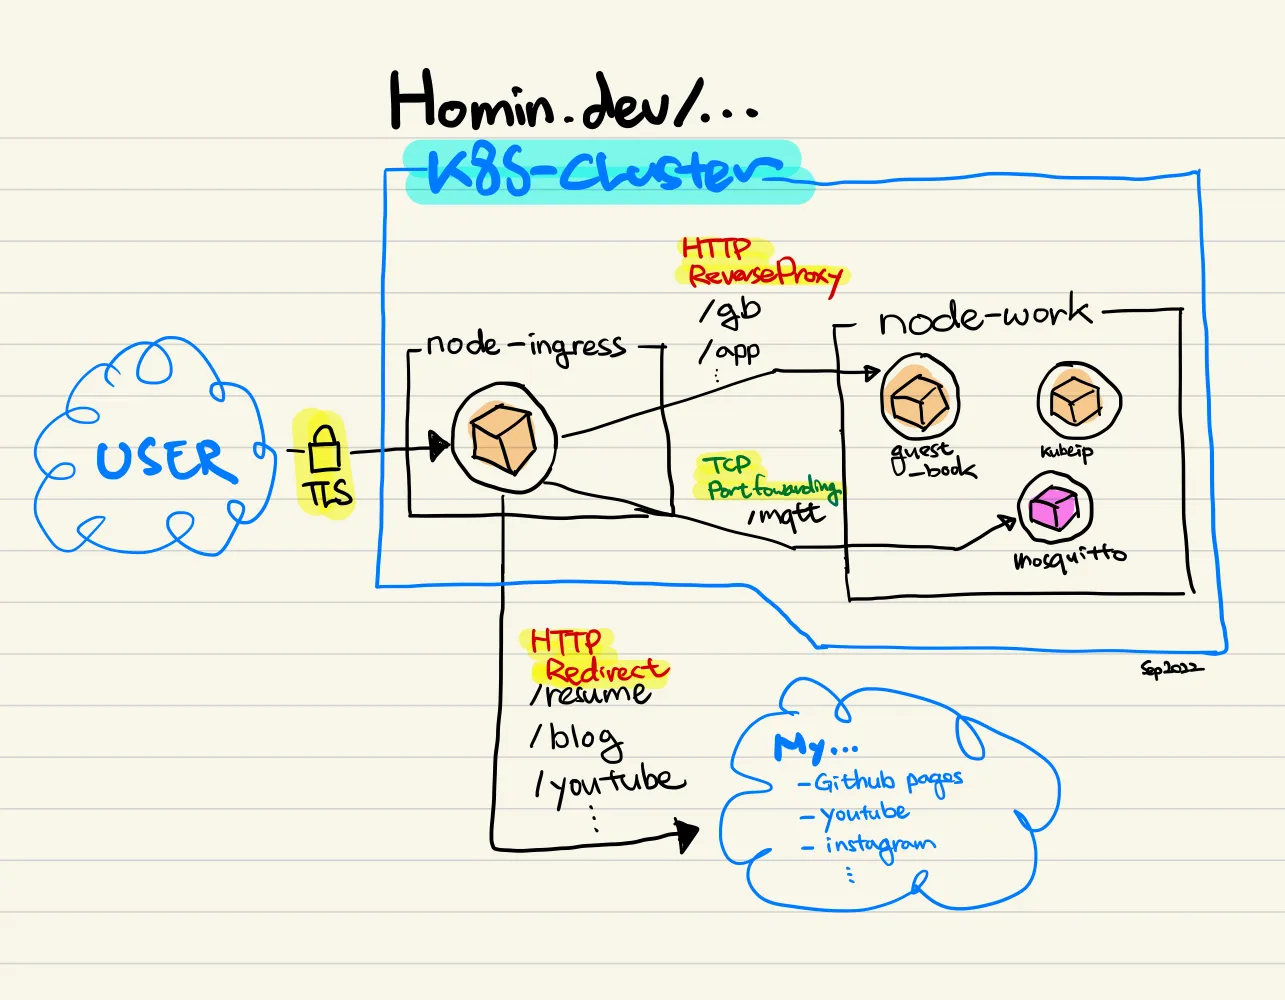 Homin.dev/...
K8S-Cluster
HTTP
ReverseProxy
/gb
/app
node-work
node-ingress
USER
TLS
guest
_book
Kubeip
TCP
Portfowarding
/mqtt
mosquitto
HTTP
Redirect
/resume
/blog
/youtube
Sep2022
My...
- Github pages
- youtube
- instagram